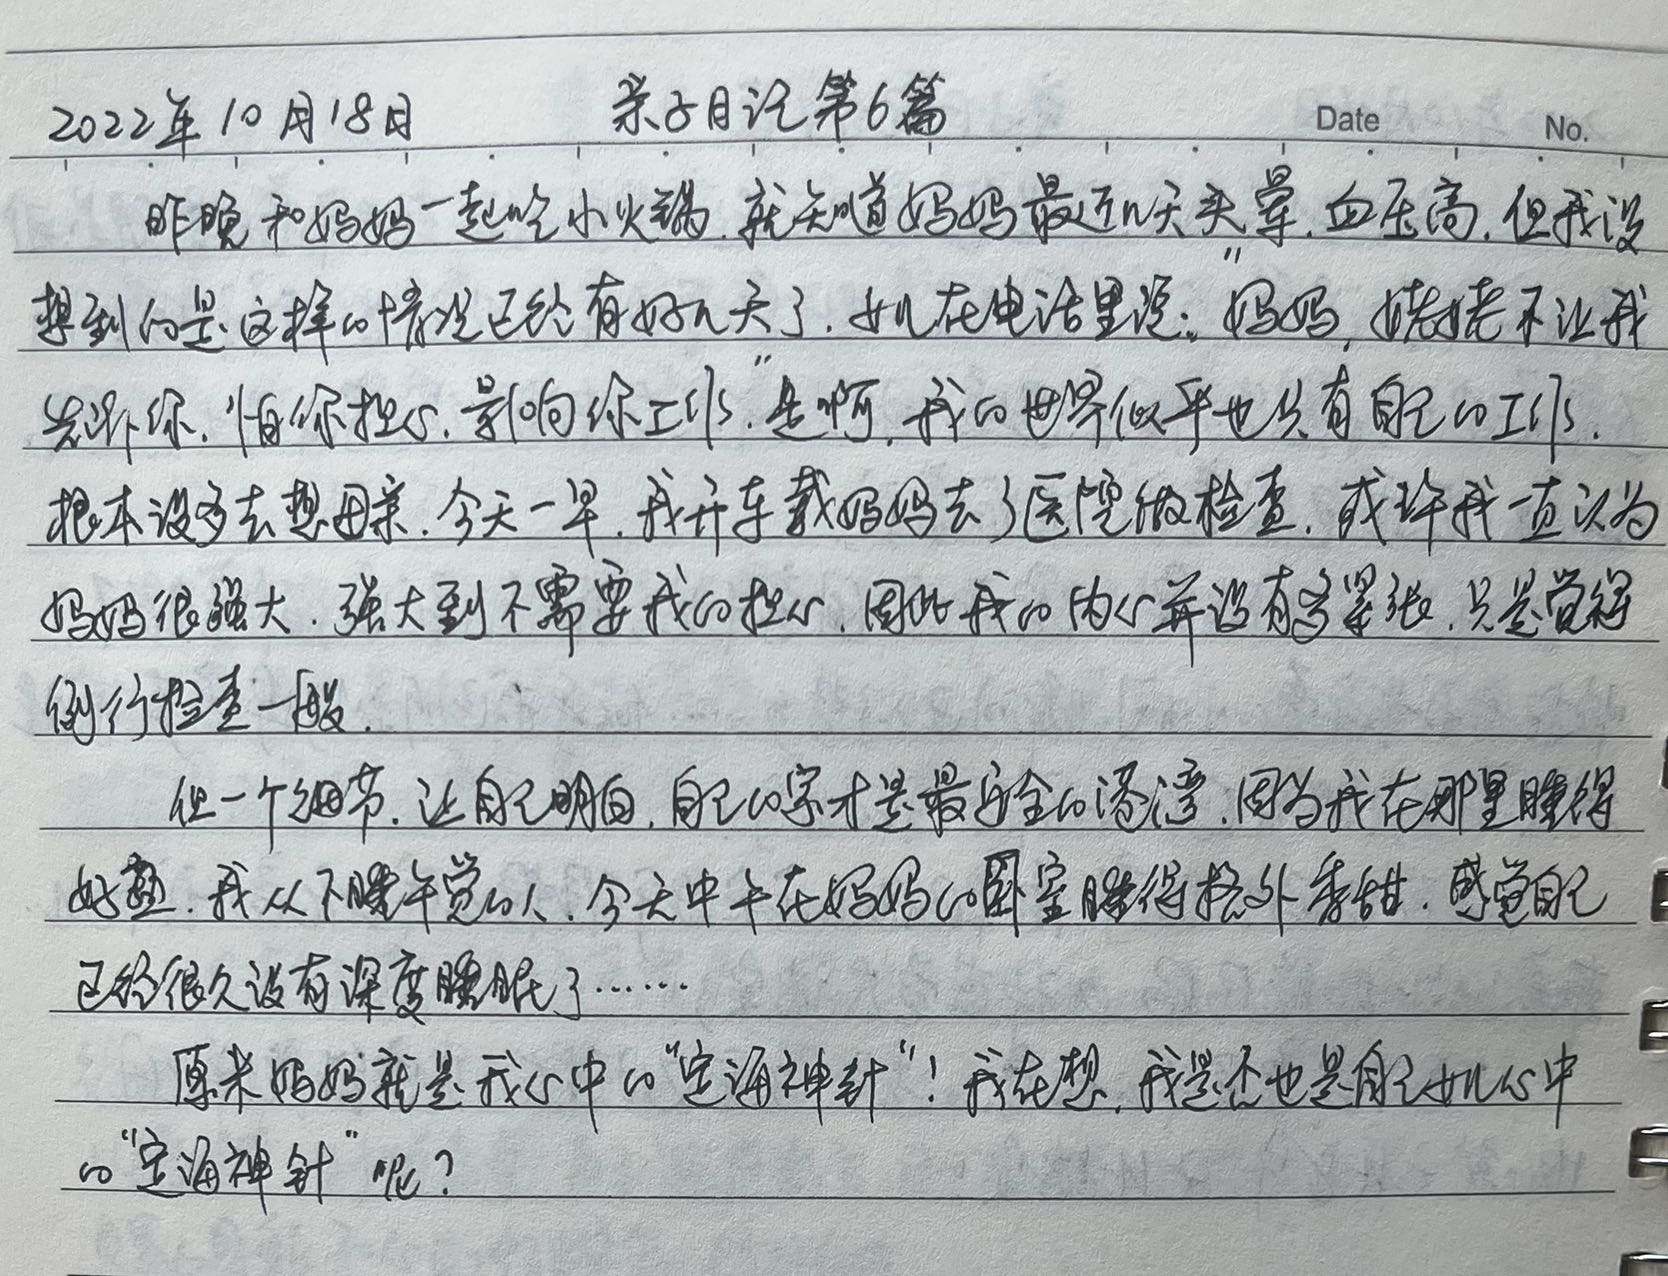 2022年10月18日 亲子日记第6篇 Date No.
昨晚和妈妈一起吃小火锅,就知道妈妈最近几天头晕,血压高,但我没
想到的是这样的情况已经有好几天了,女儿在电话里说:“妈妈,姥姥不让我
告诉你,怕你担心,影响你工作.”是啊,我的世界似乎也只有自己的工作,
根本没多去想母亲.今天一早,我开车载妈妈去了医院做检查,或许我一直认为
妈妈很强大,强大到不需要我的担心,因此我的内心并没有多紧张,只是觉得
例行检查一般.
但一个细节,让自己明白,自己的家才是最安全的港湾,因为我在那里睡得
好熟,我从不睡午觉的人,今天中午在妈妈的卧室睡得格外香甜,感觉自己
已经很久没有深度睡眠了……
原来妈妈就是我心中的“定海神针”!我在想,我是否也是自己女儿心中
的“定海神针”呢?